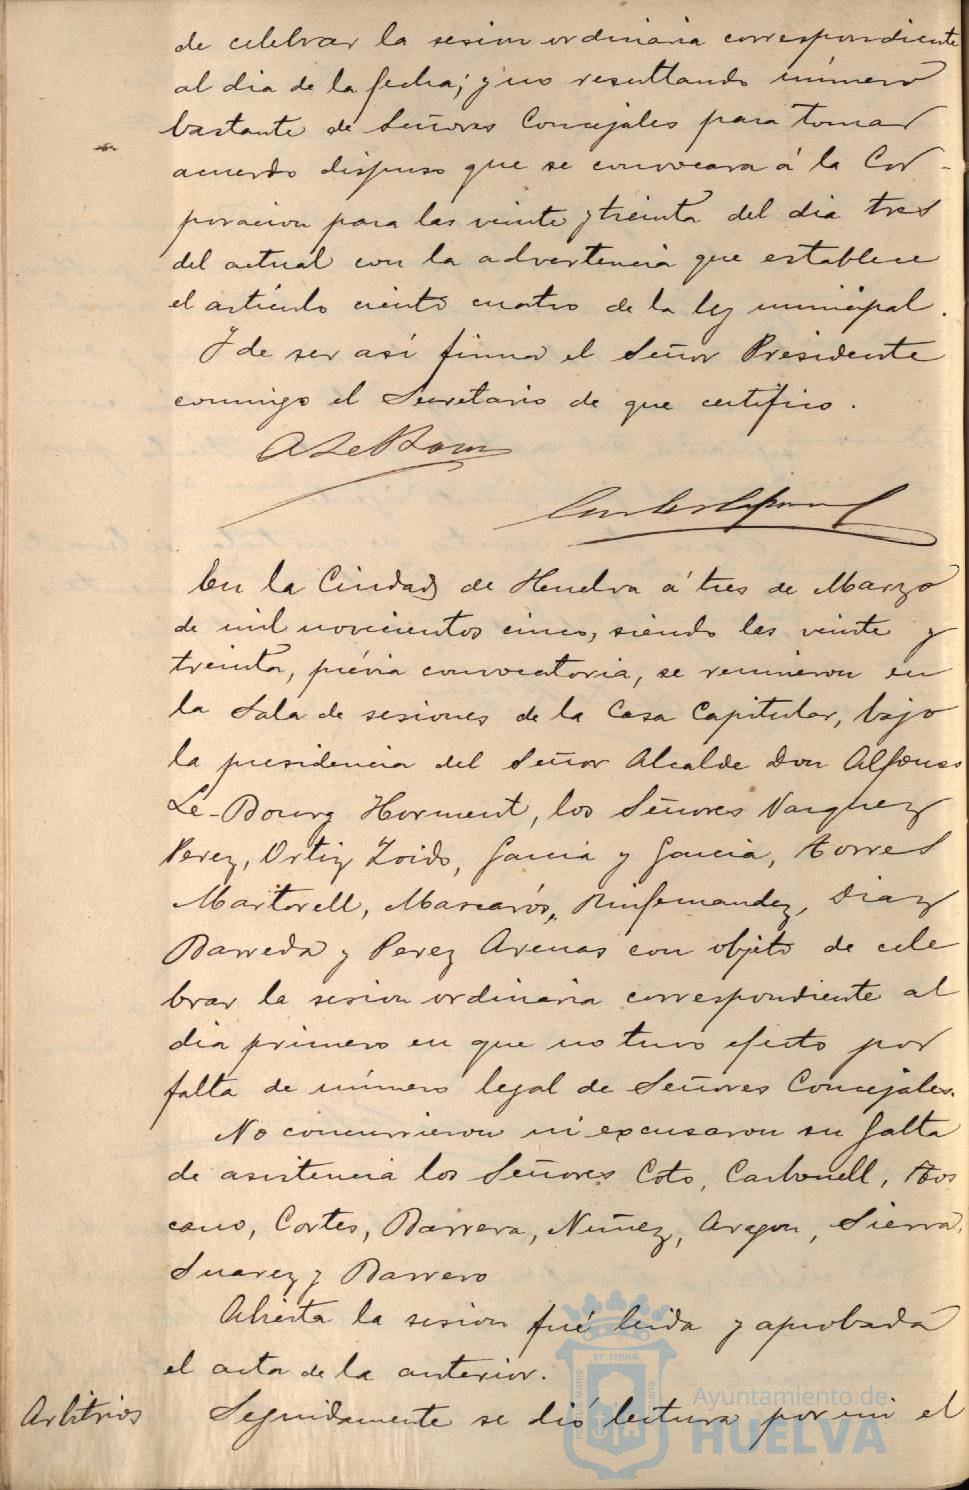 de celebrar la sesion ordinaria correspondiente
al dia de la fecha; y no resultando número
bastante de Señores Concejales para tomar
acuerdo dispuso que se convocara á la Cor-
poracion para las veinte y treinta del dia tres
del actual con la advertencia que establece
el artículo ciento cuatro de la ley municipal.
Y de ser así firma el Señor Presidente
conmigo el Secretario de que certifico.
En la Ciudad de Huelva á tres de Marzo
de mil novecientos cinco, siendo las veinte y
treinta, prévia convocatoria, se reunieron en
la Sala de sesiones de la Casa Capitular, bajo
la presidencia del Señor Alcalde Don Alfonso
Le-Bourg Horment, los Señores Vazquez
Perez, Ortiz Zoido, Garcia y Garcia, Torres
Martorell, Mascarós, Dias
Barreda y Perez Arenas con objeto de cele
brar la sesion ordinaria correspondiente al
dia primero en que no tuvo efecto por
falta de número legal de Señores Concejales.
No concurrieron ni excusaron su falta
de asistencia los Señores Coto, Carbonell, Tos
cano, Cortes, Barrera, Nuñez, Aragon, Sierra,
Suarez y Barrero
Abierta la sesion fué leida y aprobada
el acta de la anterior.
Arbitrios Seguidamente se dió lectura por mi el
Ayuntamiento de
HUELVA